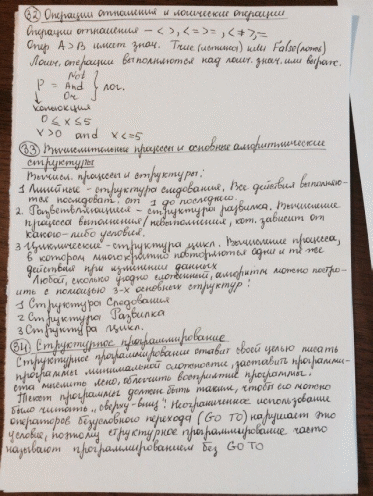 32) Операции отношения и логические операции
Операции отношения – < >, <=> =, <≠>, =
Опер A > B имеет знач. True (истина) или False (ложь)
Логич. операции выполняются над логич. знач. или выраж.
Not
P = And } лог.
Or
конъюкция
0 ≤ x ≤ 5
x > 0 and x <= 5
33) Вычислительные процессы и основные алгоритмические
структуры
Вычисл. процессы и структуры:
1 Линейные – структура следования. Все действия выполняю-
тся последоват. от 1 до последнего.
2. Разветвляющиеся – структура развилка. Вычисление
процесса выполнения / невыполнения, кот. зависит от
какого-либо условия.
3 Циклические – структура цикл. Вычисление процесса,
в котором многократно повторяются одни и те же
действия при изменении данных
Любой, сколь угодно сложенный, алгоритм можно постро-
ить с помощью 3-х основных структур:
1 Структура Следования
2 Структура Развилка
3 Структура Цикл.
34) Структурное программирование
Структурное программирование ставит своей целью писать
программы минимальной сложности, заставить программи-
ста мыслить ясно, облегчить восприятие программы.
Текст программы должен быть таким, чтобы его можно
было читать „сверху-вниз". Неограниченное использование
операторов безусловного перехода (GO TO) нарушает это
условие, поэтому структурное программирование часто
называют программированием без GO TO